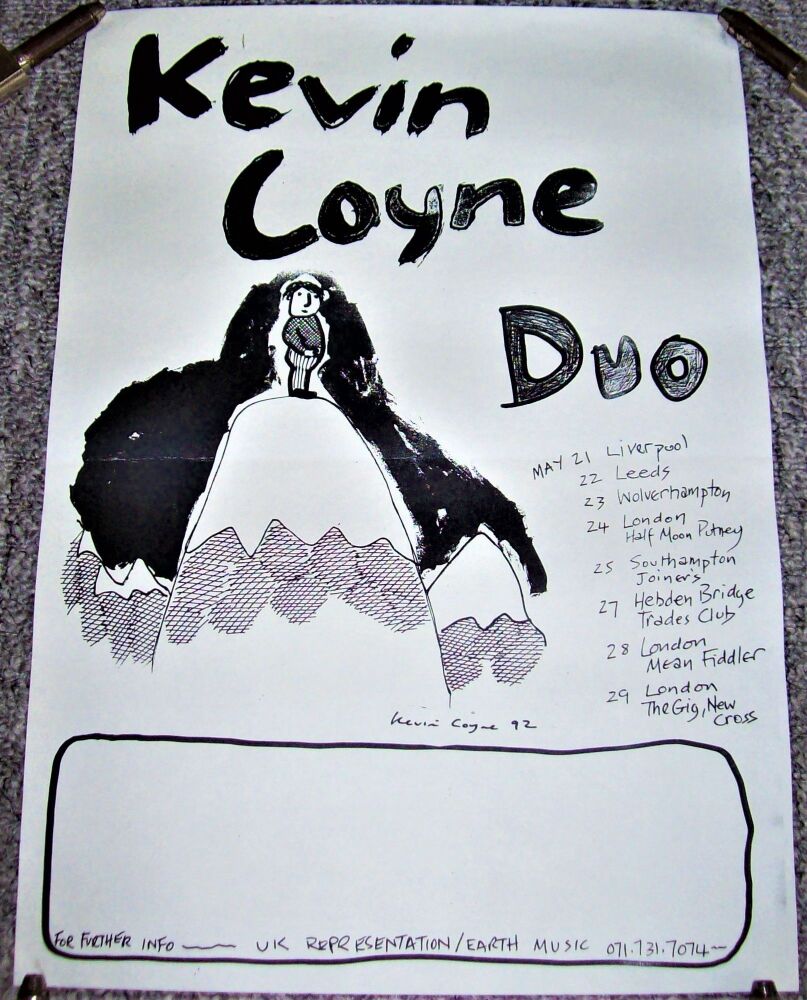 Kevin
Coyne
Duo
MAY 21 Liverpool
22 Leeds
23 Wolverhampton
24 London
Half Moon Putney
25 Southampton
Joiner's
27 Hebden Bridge
Trades Club
28 London
Mean Fiddler
29 London
The Gig, New
Cross
Kevin Coyne 92
FOR FURTHER INFO —— UK REPRESENTATION/EARTH MUSIC 071.731.7074—